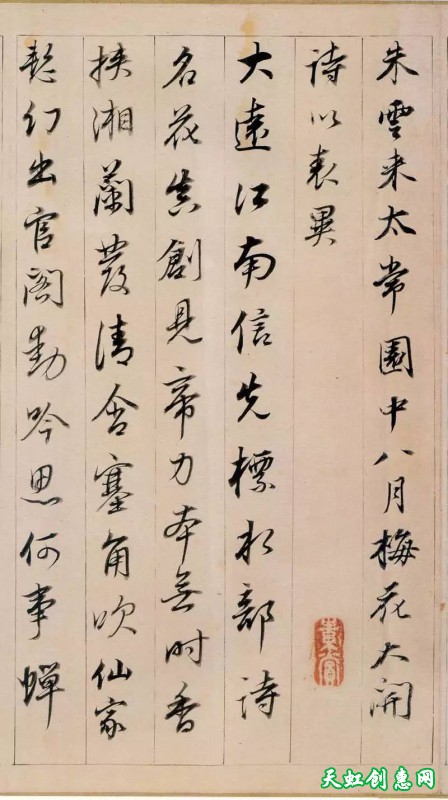 朱雲来太常園中八月梅花大開
詩以表異
大遠江南信先標水部詩
名花真創見帝力本無時香
挾湘蘭發清含塞角吹仙家
能幻出官閣動吟思何事蟬
天虹创惠网